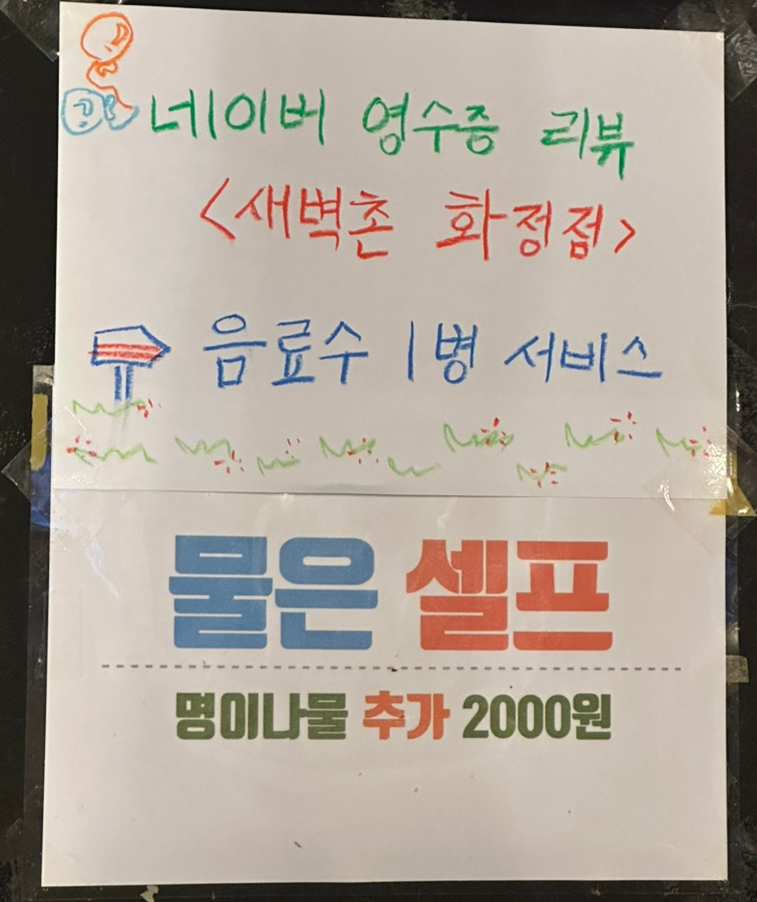 네이버 영수증 리뷰
<새벽촌 화정점>
음료수 1병 서비스
물은 셀프
명이나물 추가 2000원